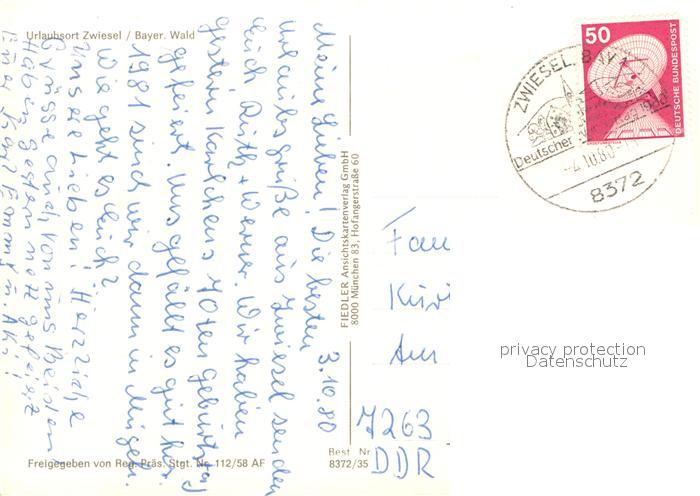 Urlaubsort Zwiesel / Bayer. Wald
3.10.80
Meine Lieben! Die besten
Urlaubsgrüße aus Zwiesel senden
Euch Ruth + Werner. Wir haben
gestern Karlchens 70ten Geburtstag
gefeiert. Uns gefällt es gut hier
1981 sind wir dann in
Wie geht es Euch?
Unsere Lieben! Herzliche
Grüsse auch von uns Beiden
Haben gestern nett gefeiert
Eure
Freigegeben von Reg. Präs. Stgt. Nr. 112/58 AF
FIEDLER Ansichtskartenverlag GmbH
8000 München 83, Hofangerstraße 60
Best Nr
8372/35
50
DEUTSCHE BUNDESPOST
ZWIESEL
Deutscher
-4.10.80
8372
Am
7263
DDR
privacy protection
Datenschutz